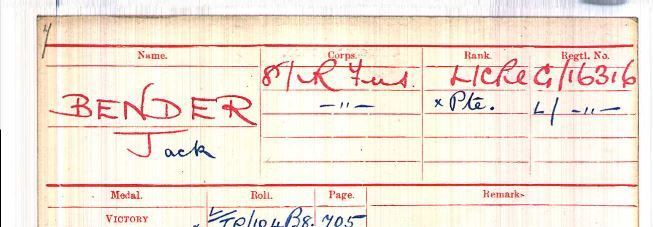 Name. Corps. Rank. Regtl. No.
8/ R Fus. L/Cpl G/16316
BENDER —"— x Pte. L/ —"—
Jack
Medal. Roll. Page. Remarks
VICTORY L/TP/104B8. 705